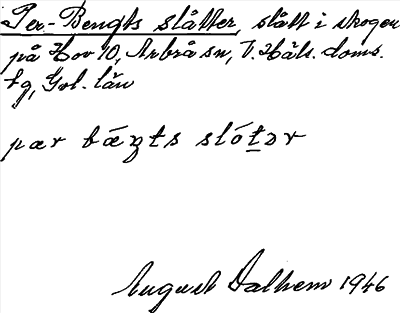 Per-Bengts slåtter, slått i skogen
på Hov 10, Arbrå sn, V. Häls. doms.
tg, Gvl. län
pær bæŋts slótər
August Dalhem 1946